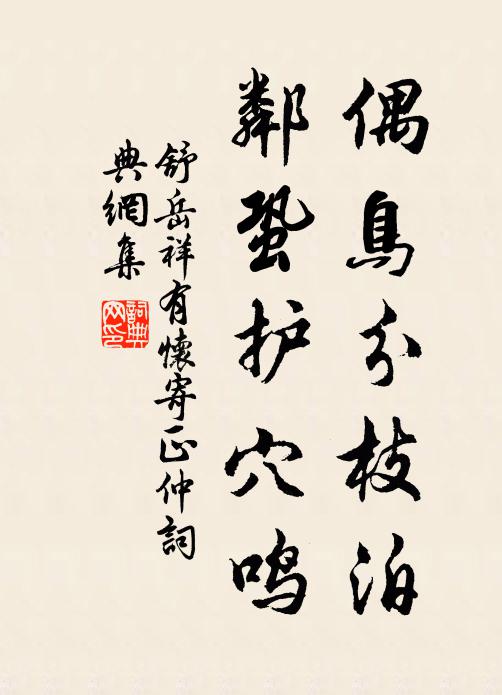 偶鳥分枝泊
鄰蛩护穴鸣
舒岳祥有懷寄正仲詞
典網集
詞典网印